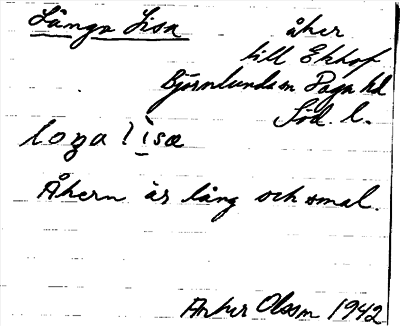 Långa Lisa
åker
till Ekhof
Björnlunda sn Daga hd
Söd. l.
loŋa lisa
Åkern är lång och smal.
Olsson 1942